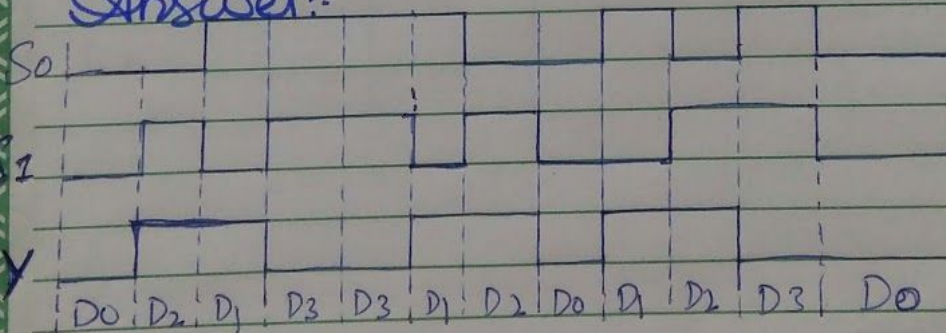 Answer:-
S0
1
Y
D0 D2 D1 D3 D3 D1 D2 D0 D1 D2 D3 D0